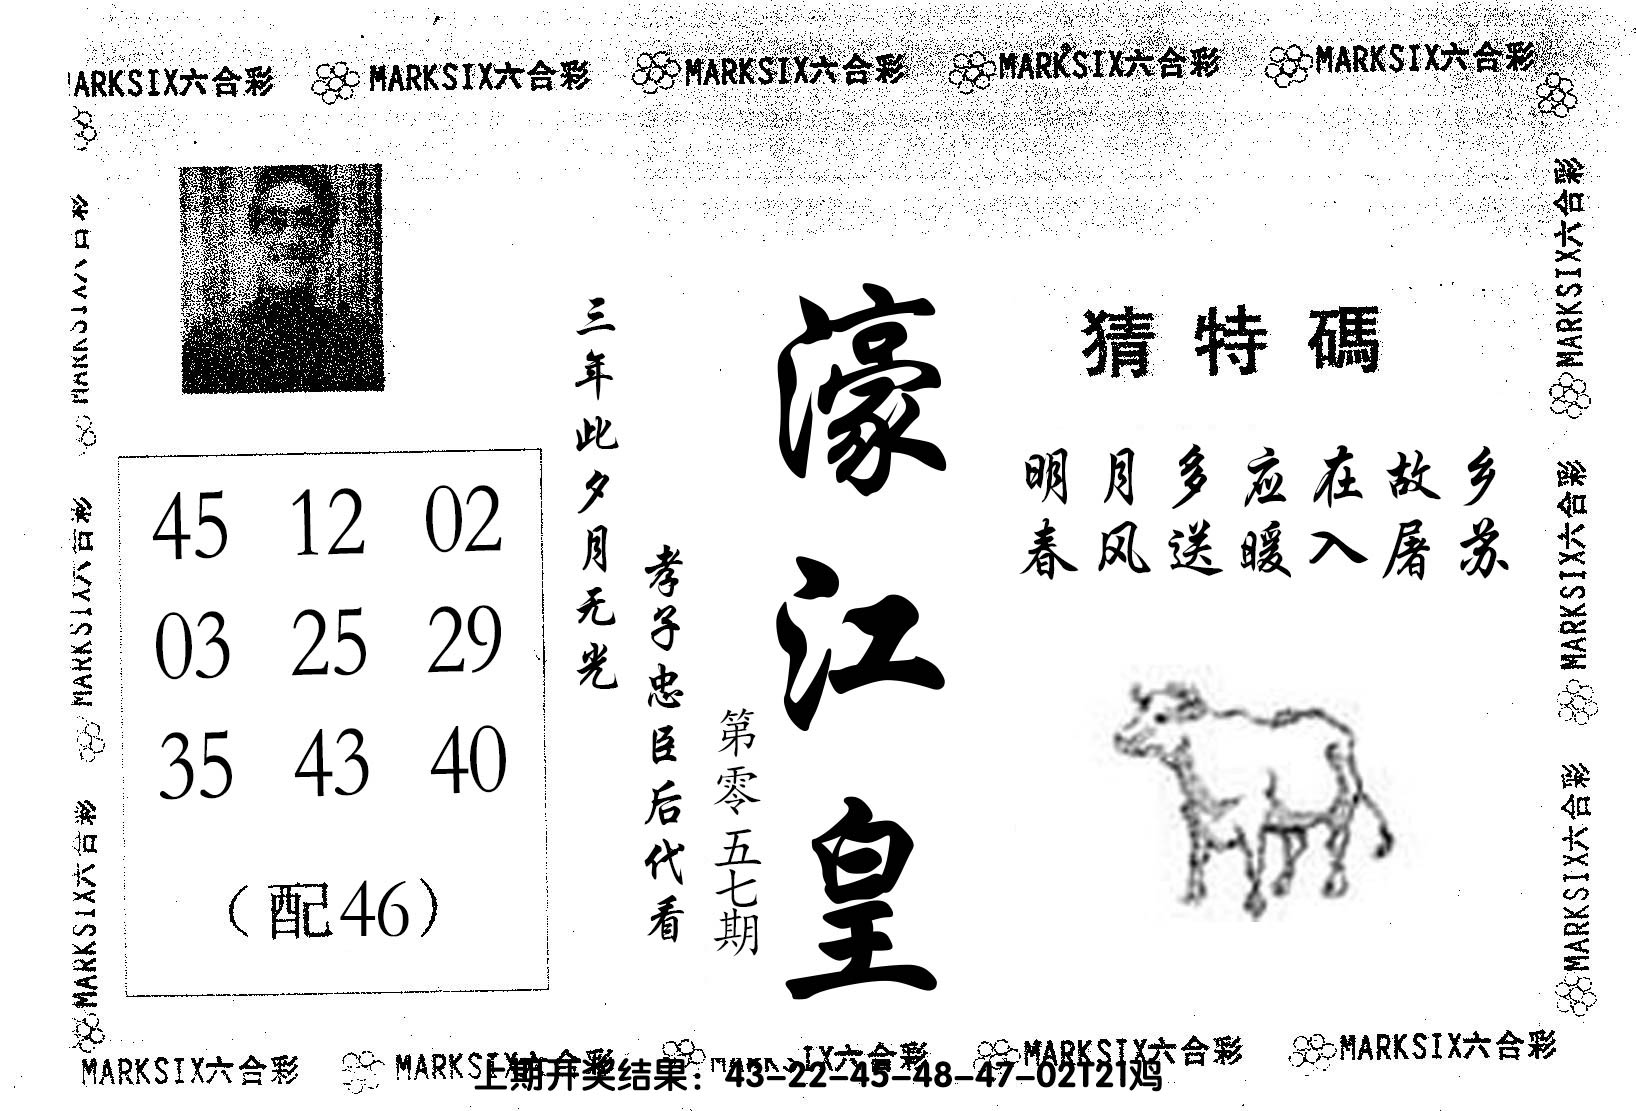 MARKSIX六合彩 MARKSIX六合彩 MARKSIX六合彩 MARKSIX六合彩 MARKSIX六合彩
MARKSIX六合彩
MARKSIX六合彩
MARKSIX六合彩
MARKSIX六合彩
MARKSIX六合彩
MARKSIX六合彩
45 12 02
03 25 29
35 43 40
（配46）
三年此夕月无光
孝子忠臣后代看
第零五七期
濠江皇
猜特碼
明月多应在故乡
春风送暖入屠苏
MARKSIX六合彩 MARKSIX六合彩 MARKSIX六合彩 MARKSIX六合彩 MARKSIX六合彩
上期开奖结果：43-22-45-48-47-02T21鸡